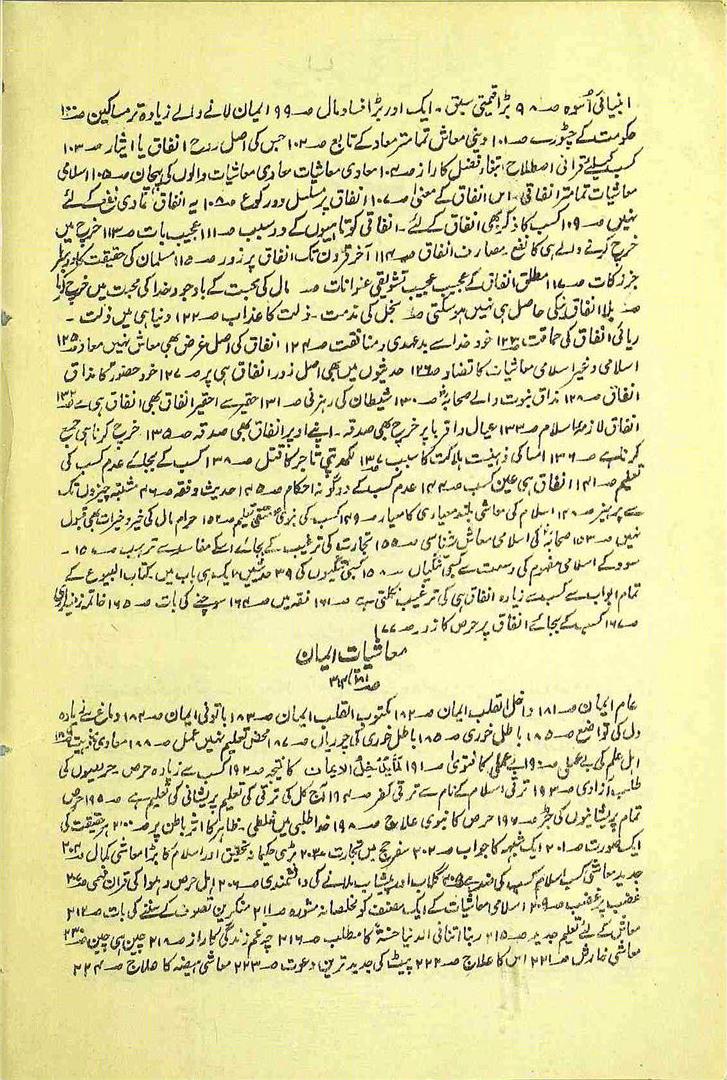 انبیائی اُسوہ صـ ۹۸ بڑا قیمتی سبق۔ ایک اور بڑا فساد مال صـ ۹۹ ایمان لانے والے زیادہ تر مساکین صـ ۱۰۰
حکومت کے چٹورے صـ ۱۰۱ دینی معاش تمامتر معاد کے تابع صـ ۱۰۲ جس کی اصل روح انفاق یا ایثار صـ ۱۰۳
کسب کیلئے قرآنی اصطلاح ابتغاء فضل کا راز صـ ۱۰۴ معادی معاشیات معادی معاشیات والوں کی پہچان صـ ۱۰۵ اسلامی
معاشیات تمامتر انفاقی۔ اس انفاق کے معنیٰ صـ ۱۰۷ انفاق پر مسلسل دو رکوع صـ ۱۰۸ یہ انفاق مادی نفع کے لئے
نہیں صـ ۱۰۹ کسب کا ذکر بھی انفاق کے لئے۔ انفاقی کوتاہیوں کے دو سبب صـ ۱۱۱ عجیب بات صـ ۱۱۳ خرچ میں
خرچ کرنے والے ہی کا نفع۔ مصارف انفاق صـ ۱۱۴ آخر قرون تک انفاق پر زور صـ ۱۱۵ مسلمان کی حقیقت کا
جز زکات صـ ۱۱۷ مطلق انفاق کے عجیب عجیب تشویقی عنوانات صـ مال کی محبت کے باوجود خدا کی محبت میں خرچ کرنا
صـ بلا انفاق نیکی حاصل ہی نہیں ہو سکتی صـ بخل کی مذمت۔ ذلت کا عذاب صـ ۱۲۲ دنیا ہی میں ذلت۔
ریائی انفاق کی حماقت صـ ۱۲۳ خود خدا سے بدعہدی و منافقت صـ ۱۲۴ انفاق کی اصل غرض بھی معاش نہیں معاد صـ ۱۲۵
اسلامی وغیر اسلامی معاشیات کا تضاد صـ ۱۲۶ حدیثوں میں بھی اصل زور انفاق ہی پر صـ ۱۲۷ خود حضورؐ کا مذاق
انفاق صـ ۱۲۸ مذاق نبوت والے صحابہؓ صـ ۱۳۰ شیطان کی رہزنی صـ ۱۳۱ حقیر سے حقیر انفاق بھی انفاق ہی ہے صـ ۱۳۲
انفاق لازمۂ اسلام صـ ۱۳۳ عیال و اقربا پر خرچ بھی صدقہ۔ اپنے اوپر انفاق بھی صدقہ صـ ۱۳۵ خرچ کرنا ہی جمع
کرنا ہے صـ ۱۳۶ امساکی ذہنیت ہلاکت کا سبب صـ ۱۳۷ لکھ پتی تاجر کا قتل صـ ۱۳۸ کسب کے بجائے عدم کسب کی
تعلیم صـ ۱۴۱ انفاق ہی عین کسب صـ ۱۴۴ عدم کسب کے دوگونہ احکام صـ ۱۴۵ حدیث و فقہ صـ ۱۴۶ مشتبہ چیزوں تک
سے پرہیز صـ ۱۴۸ اسلام کی معاشی بلند معیاری کا معیار صـ ۱۴۹ کسب کی نبوی تعلیم صـ ۱۵۲ حرام مال کی خیر و خیرات بھی قبول
نہیں صـ ۱۵۳ صحابہؓ کی اسلامی معاش شناسی صـ ۱۵۵ تجارت کی ترغیب کے بجائے اسکے مفاسد سے ترہیب صـ ۱۵۷۔
سود کے اسلامی مفہوم کی وسعت سے کسبی تنگیاں صـ ۱۵۸ کسبی تنگیوں کی ۳۹ حدیثیں ایک ہی باب میں کتاب البیوع کے
تمام ابواب سے کسب سے زیادہ انفاق ہی کی ترغیب نکلتی ہے صـ ۱۶۱ فقہ میں صـ ۱۶۴ سوچنے کی بات صـ ۱۶۵ خاتمہ
صـ ۱۶۷ کسب کے بجائے انفاق پر حرص کا زور صـ ۱۷۷
معاشیات ایمان
عام ایمان صـ ۱۸۱ داخل القلب ایمان صـ ۱۸۲ مکتوب القلب ایمان صـ ۱۸۳ باتونی ایمان صـ ۱۸۴ دماغ سے زیادہ
دل کی تواضع صـ ۱۸۵ باطل خوری صـ ۱۸۵ باطل خوری کی صـ ۱۸۷ محض تعلیم نہیں عمل صـ ۱۸۸ معادی
اہل علم کی بے عملی صـ ۱۹۰ بے عملی کا فتویٰ صـ ۱۹۱ الایمان کا نتیجہ صـ ۱۹۲ کسب سے زیادہ حرص حریصوں کی
طلب آزادی صـ ۱۹۳ ترقی اسلام کے نام سے ترقی کفر صـ ۱۹۴ آج کل کی ترقی کی تعلیم پریشانی کی تعلیم ہے صـ ۱۹۵ حرص
تمام پریشانیوں کی جڑ صـ ۱۹۶ حرص کا نبوی علاج صـ ۱۹۸ خدا طلبی میں غلطی۔ ظاہر کا اثر باطن پر صـ ۲۰۰ ہر حقیقت کی
ایک صورت صـ ۲۰۱ ایک شبہہ کا جواب صـ ۲۰۲ سفر حج میں تجارت صـ ۲۰۳ بڑی حکیمانہ تحقیق اور اسلام کا بڑا معاشی کمال صـ ۲۰۴
جدید معاشی کسب اسلامی کسب کی ضد ہے صـ ۲۰۵ گلاب اور پیشاب ملانے کی دانشمندی صـ ۲۰۶ اہل حرص و ہوا کی قرآن فہمی صـ
غضب پر غضب صـ ۲۰۹ اسلامی معاشیات کے ایک مصنف کو مخلصانہ مشورہ صـ ۲۱۱ منکرین تصوف کے سننے کی بات صـ ۲۱۲
معاش کے لئے تعلیم جدید صـ ۲۱۵ ربنا اٰتنا فی الدنیا حسنۃ کا مطلب صـ ۲۱۶ پرغم زندگی کا راز صـ ۲۱۸ چین ہی چین صـ
معاشی خارش صـ ۲۲۱ اس کا علاج صـ ۲۲۲ پیٹ کی جدید ترین دعوت صـ ۲۲۳ معاشی ہیضہ کا علاج صـ ۲۲۴